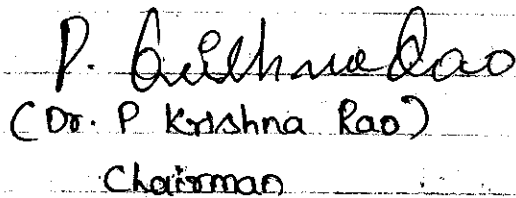 P. Krishna Rao
(Dr. P Krishna Rao)
Chairman